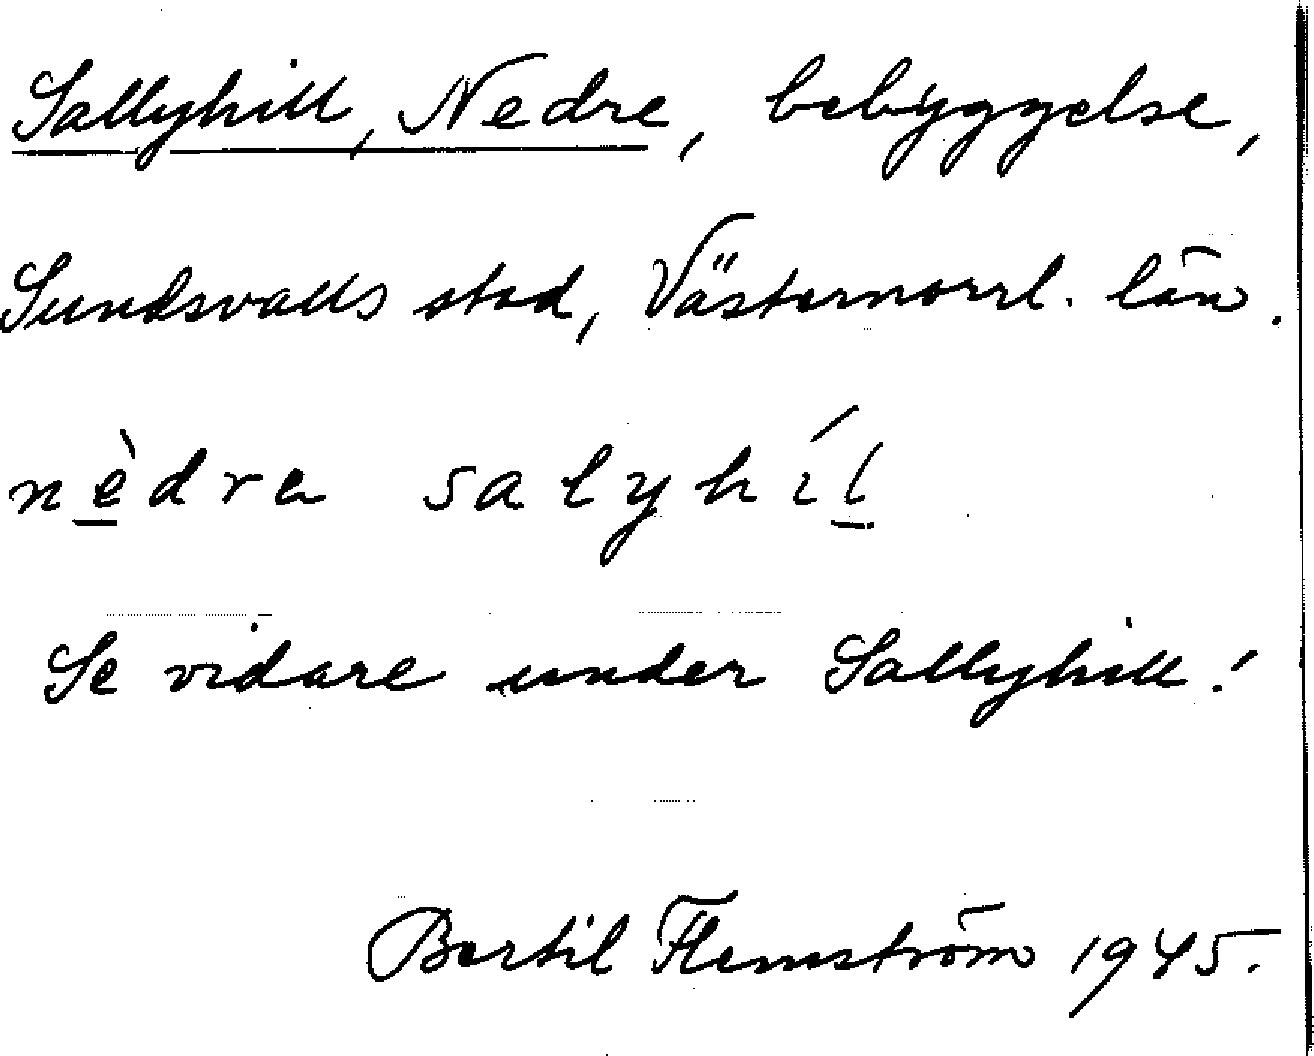 Sallyhill, Nedre, bebyggelse,
Sundsvalls stad, Västernorrl. län.
nèdra salyhíl
Se vidare under Sallyhill!
Bertil Flemström 1945.